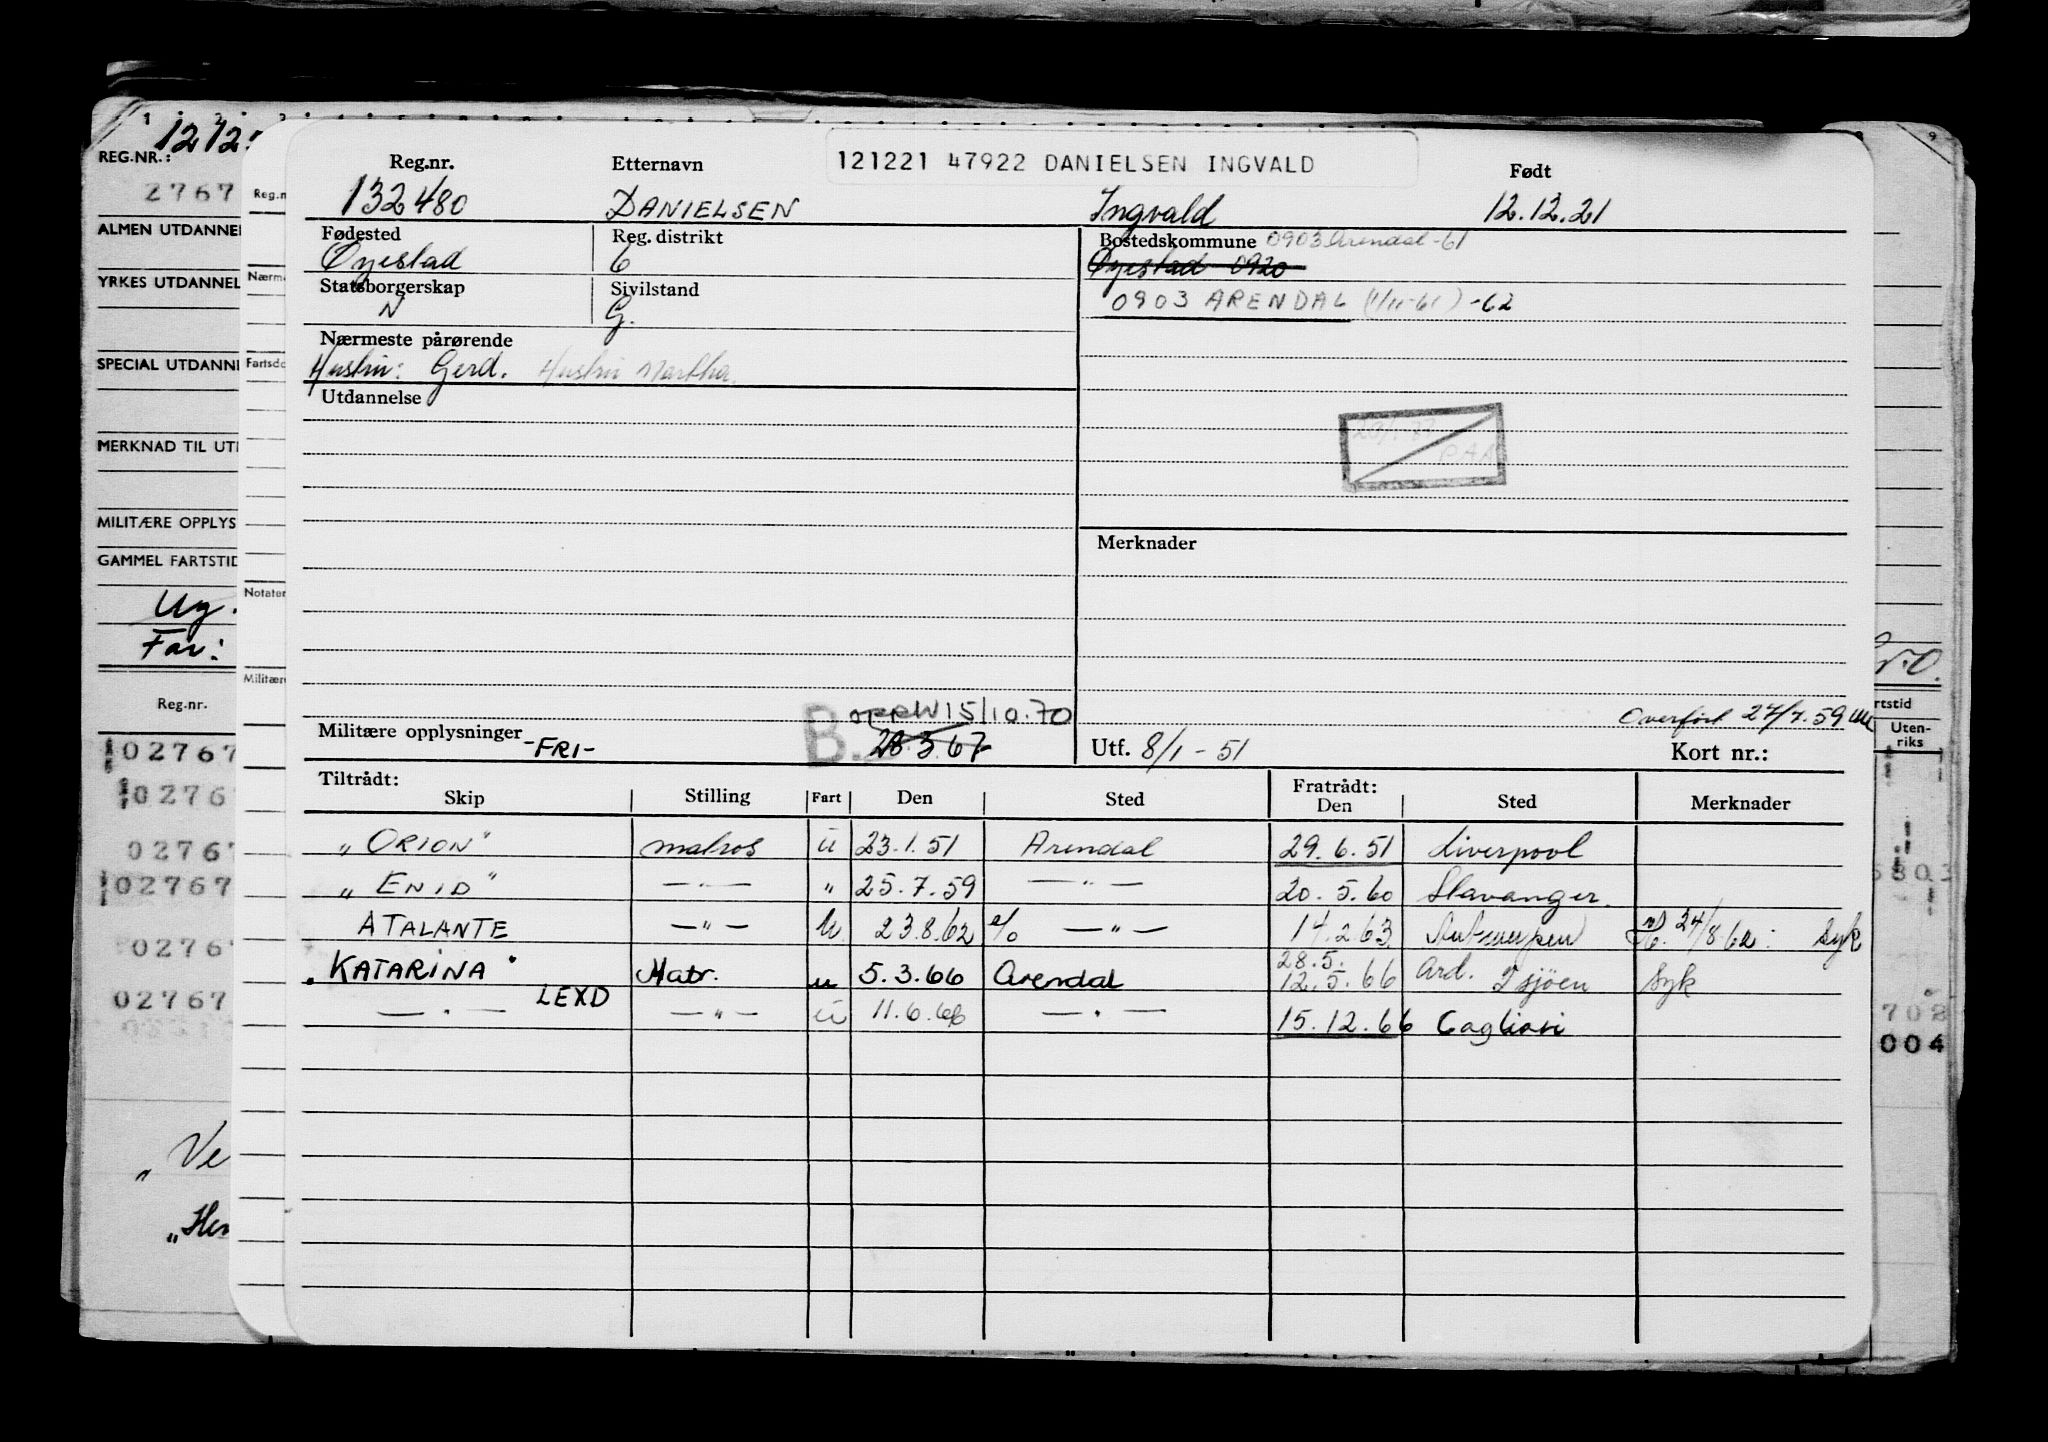 12125
REG.NR.:
2767
ALMEN UTDANNE
YRKES UTDANNEL
SPECIAL UTDANN
MERKNAD TIL UT
MILITÆRE OPPLYS
GAMMEL FARTSTID
Ug.
Far:
Reg.nr.
02767
02767
02767
02767
02767
02767
„Ve
„Hen
Reg.n
Nærme
Fartsdo
Notater
Militære
Reg.nr. Etternavn 121221 47922 DANIELSEN INGVALD Født
132480 DANIELSEN Ingvald 12.12.21
Fødested Reg. distrikt Bostedskommune 0903 Arendal -61
Øyestad 6 Øyestad 0920
Statsborgerskap Sivilstand 0903 ARENDAL (1/11-61) -62
N G.
Nærmeste pårørende
Hustru: Gerd. Hustru Martha.
Utdannelse
PAA
Merknader
15/10.70
Overført 27/7.59
Militære opplysninger -FRI- B. 28.3.67 Utf. 8/1-51 Kort nr.:
Tiltrådt: Fratrådt:
Skip Stilling Fart Den Sted Den Sted Merknader
„ORION" matros u 23.1.51 Arendal 29.6.51 Liverpool
„ENID" —"— " 25.7.59 —"— 20.5.60 Stavanger.
ATALANTE —"— u. 23.8.62 e/o —"— 14.2.63 Antwerpen 24/8.62: syk
„KATARINA" Matr. u 5.3.66 Arendal 28.5. 12.5.66 Ard. syk
LEXD
—"— —"— u 11.6.66 —"— 15.12.66 Cagliari
rtstid
Uten-
riks
702
004